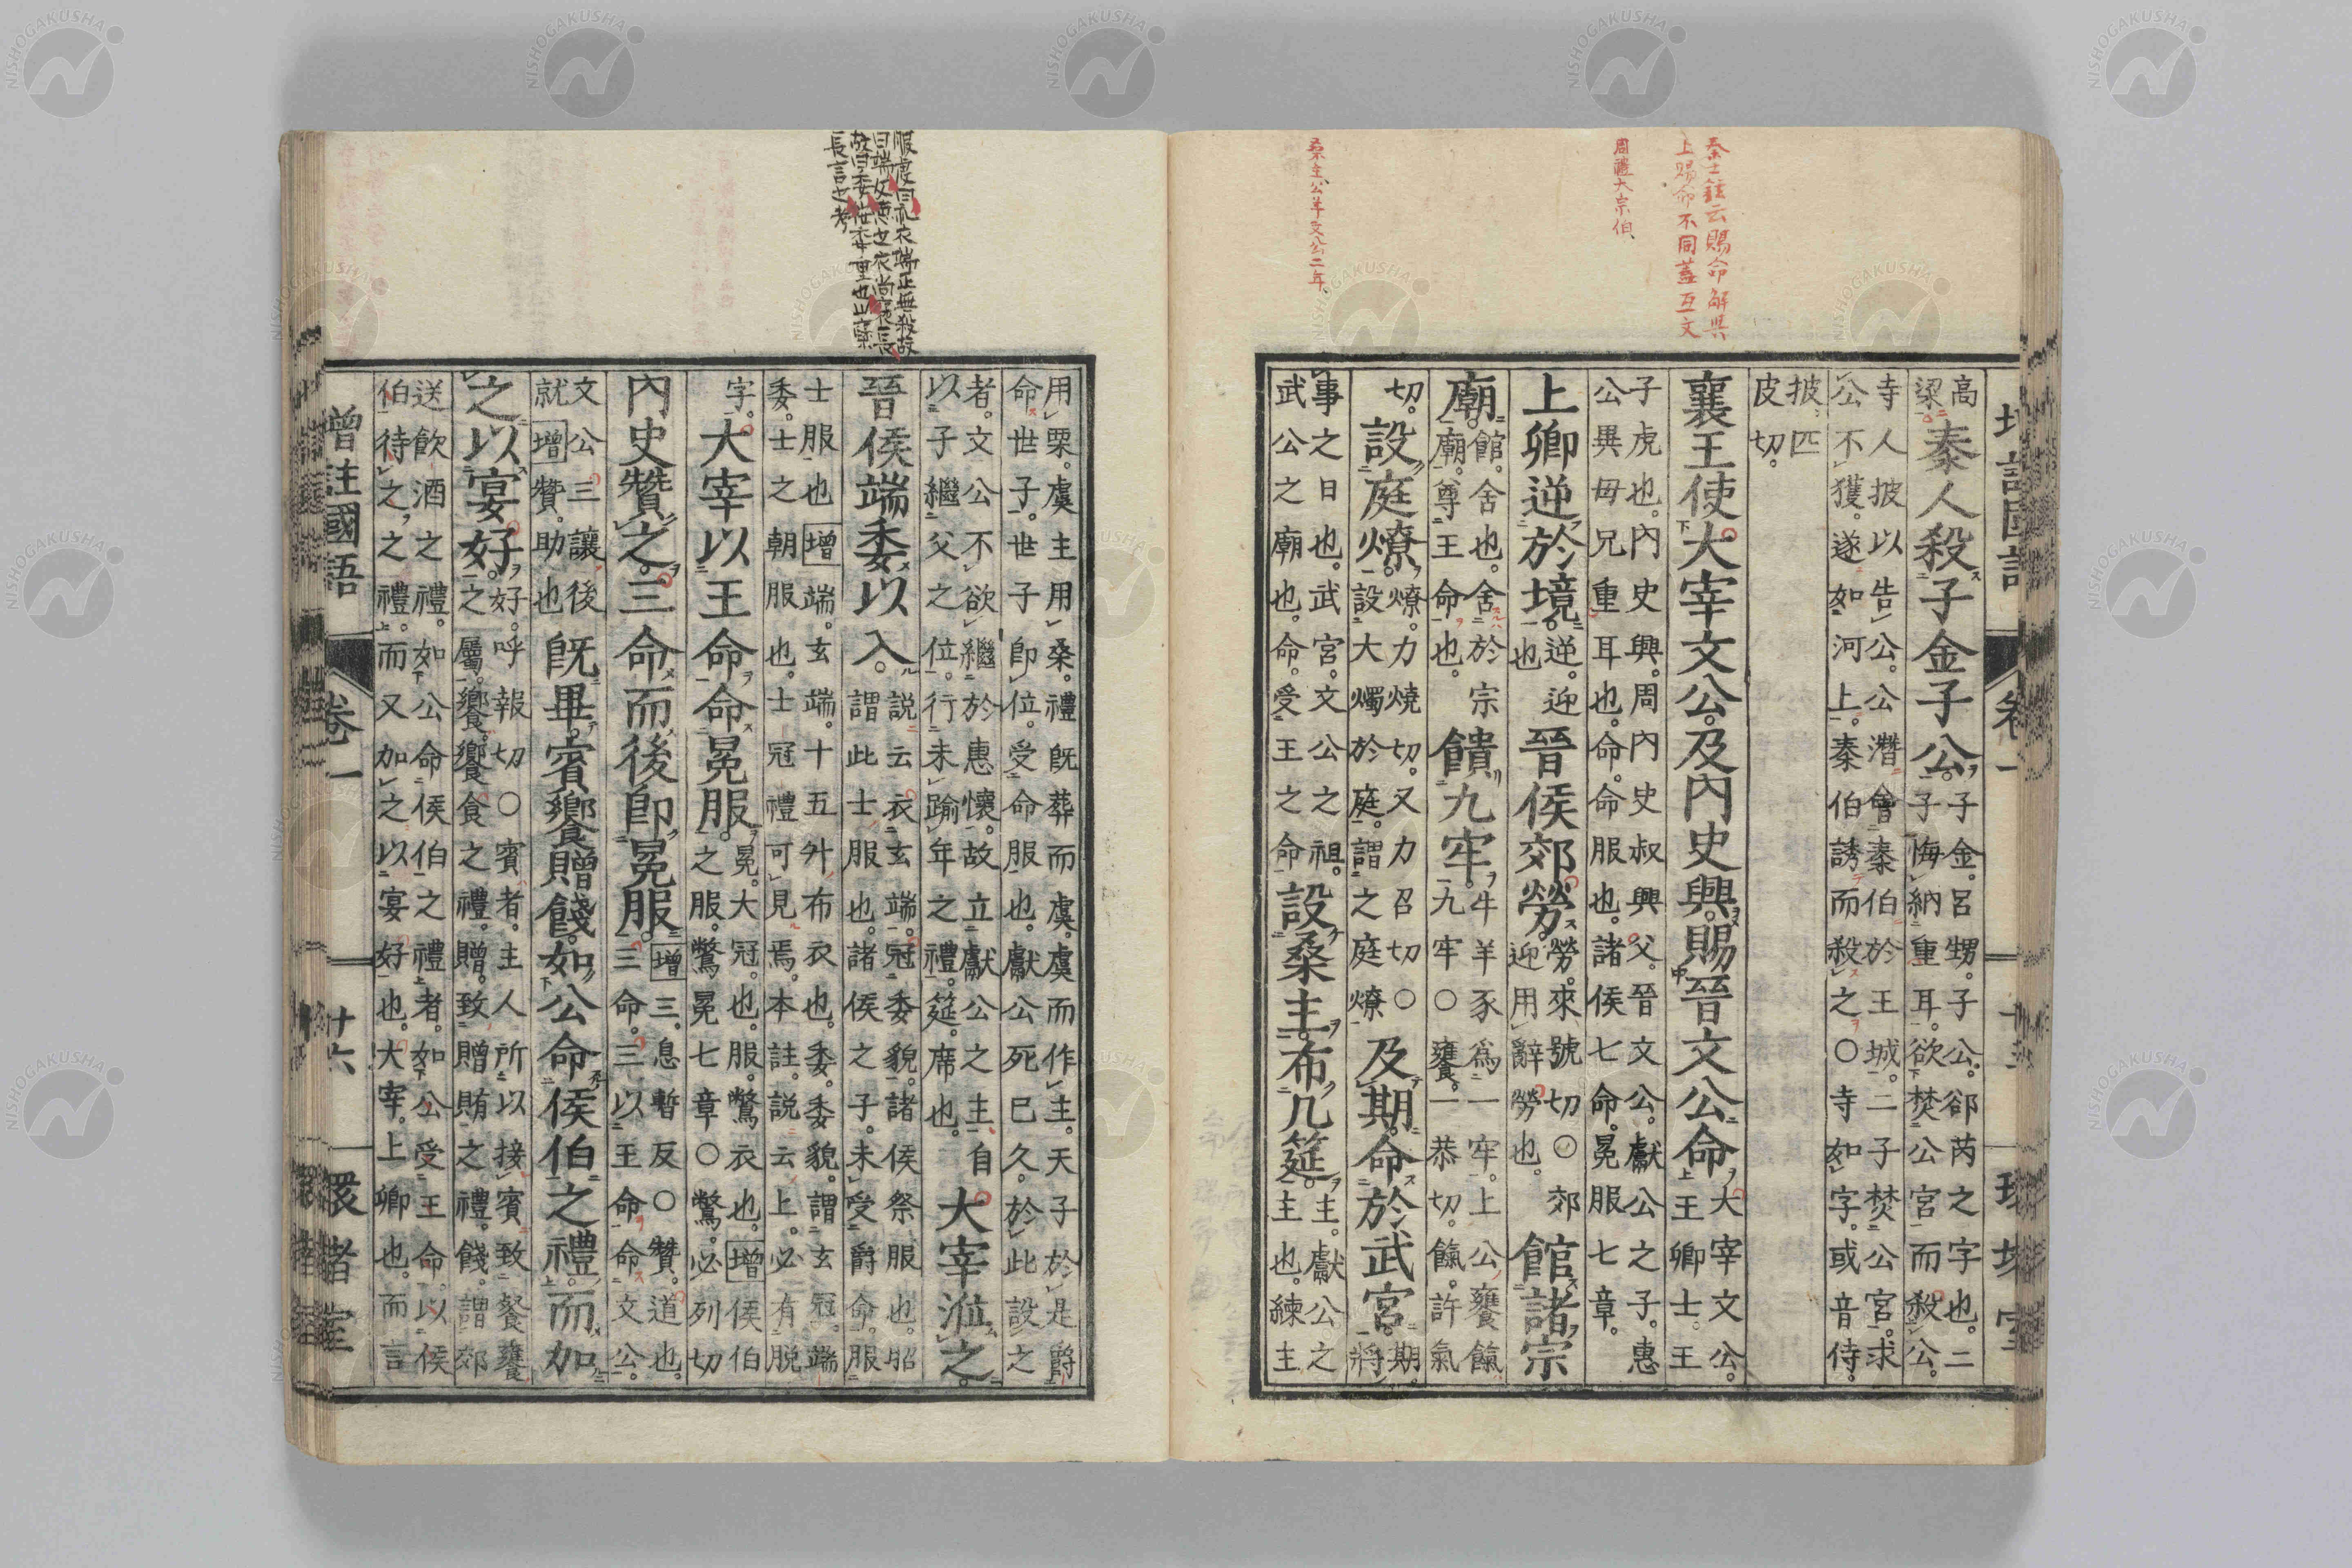 秦士鉉云賜命解與
上賜命不同蓋互文
周禮大宗伯、
桑主公羊文公二年
卷一
高梁。秦人殺子金子公。子金。呂甥。子公。郤芮之字也。二子悔納重耳。欲焚公宮而殺公。
寺人披以告公。公潛會秦伯於王城。二子焚公宮。求公不獲。遂如河上。秦伯誘而殺之。〇寺如字。或音侍。
披。匹皮切。
襄王使大宰文公。及內史興。賜晉文公命大宰文公。王卿士。王
子虎也。內史興。周內史叔興父。晉文公。獻公之子。惠公異母兄重耳也。命。命服也。諸侯七命。冕服七章。
上卿逆於境。逆。迎也晉侯郊勞。勞。來號切〇郊迎用辭勞也。館諸宗
廟。館。舍也。舍於宗廟。尊王命也。饋九牢。牛羊豕爲一牢。上公饔餼九牢〇饔。一恭切。餼。許氣
切。設庭燎。燎。力燒切。又力召切〇設大燭於庭。謂之庭燎及期。命於武宮。期。將
事之日也。武宮。文公之祖。武公之廟也。命。受王之命設桑主。布几筵。主。獻公之主也。練主
服虔曰礼衣端正無殺故
曰端文德之衣尚褒長
故曰委
長言之考
用栗。虞主用桑。禮旣葬而虞。虞而作主。天子於是爵命世子。世子卽位。受命服也。獻公死已久。於此設之
者。文公不欲繼於惠懷。故立獻公之主。自以子繼父之位。行未踰年之禮。筵。席也。大宰涖之。
晉侯端委以入。說云。衣玄端。冠委貌。諸侯祭服也。昭謂此士服也。諸侯之子。未受爵命。服
士服也增端。玄端。十五升布衣也。委。委貌。謂玄冠。端委。士之朝服也。士冠禮可見焉。本註。說云。上。必有脫
字。大宰以王命。命冕服。冕。大冠也。服。鷩衣也。增侯伯之服。鷩冕七章〇鷩。必列切
內史贊之。三命而後卽冕服。增三。息暫反〇贊。道也。三命。三以王命命文公。
文公三讓後就增贊。助也旣畢。賓饗贈餞。如公命侯伯之禮。而加
之以宴好。好。呼報切〇賓者。主人所以接賓。致飧饔之屬。饗。饗食之禮。贈。致贈賄之禮。餞。謂郊
送飮酒之禮。如公命侯伯之禮者。如公受王命。以侯伯待之之禮。而又加之以宴好也。大宰。上卿也。而言
增註國語 卷一 十六 環堵室